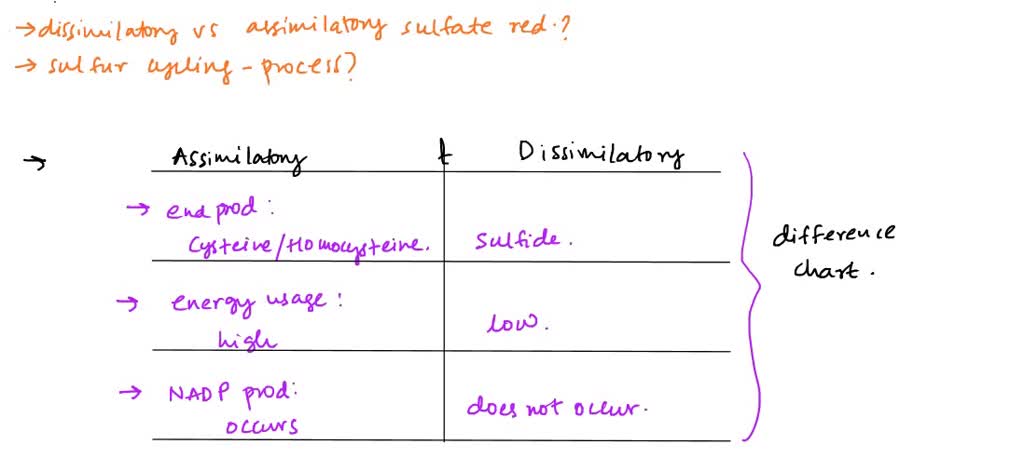 → dissimilatory vs assimilatory sulfate red.?
→ sulfur cycling - process?
→ Assimilatory t Dissimilatory
→ end prod:
Cysteine/Homocysteine. Sulfide.
→ energy usage:
high low.
→ NADP prod:
occurs does not occur.
difference
chart.